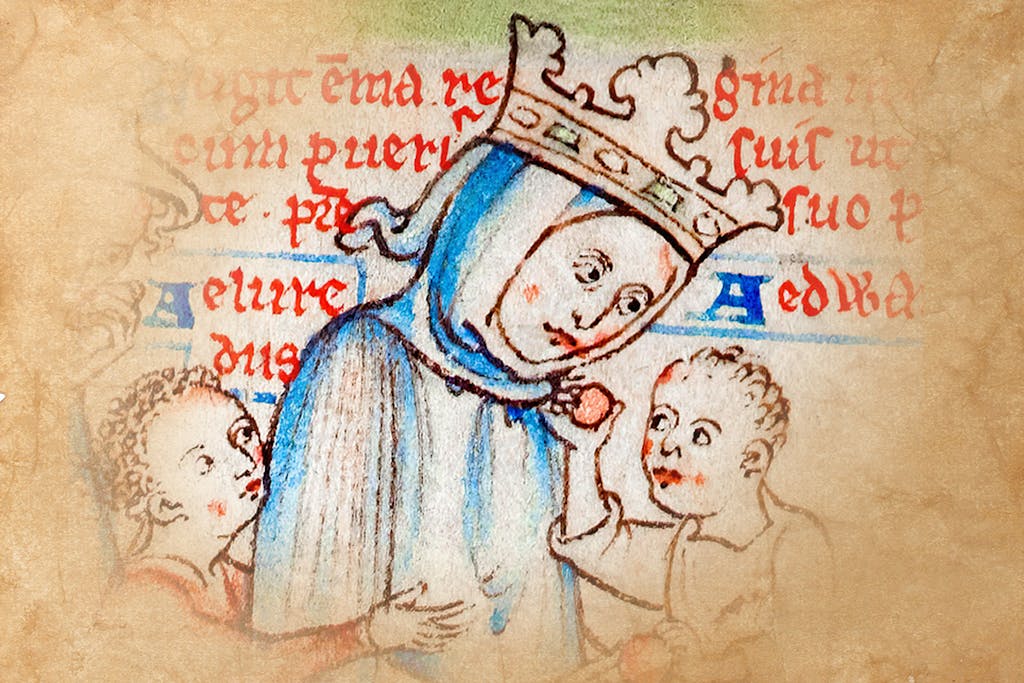 ēma re gina
cum pueri suis ut
te . pre suo p
Aelure Aedwa
dus